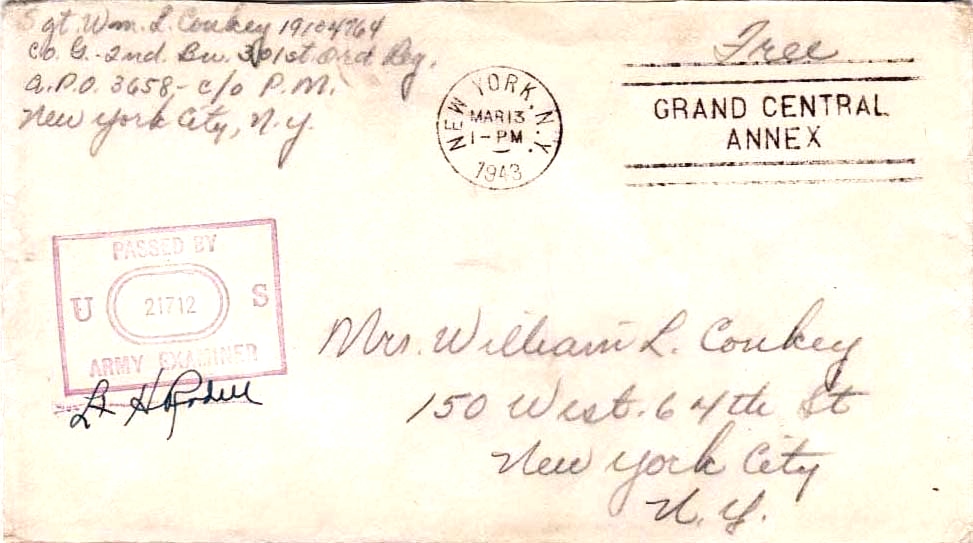 Sgt. Wm. L. Conkey 19104764
Co. G.-2nd. Bn. 301st Ord Reg.
A.P.O. 3658- c/o P.M.
New York City, N.Y.
Free
NEW YORK, N.Y.
MAR 13
1-PM
1943
GRAND CENTRAL
ANNEX
PASSED BY
U 21712 S
ARMY EXAMINER
Lt
Mrs. William L. Conkey
150 West. 64th St
New York City
N.Y.